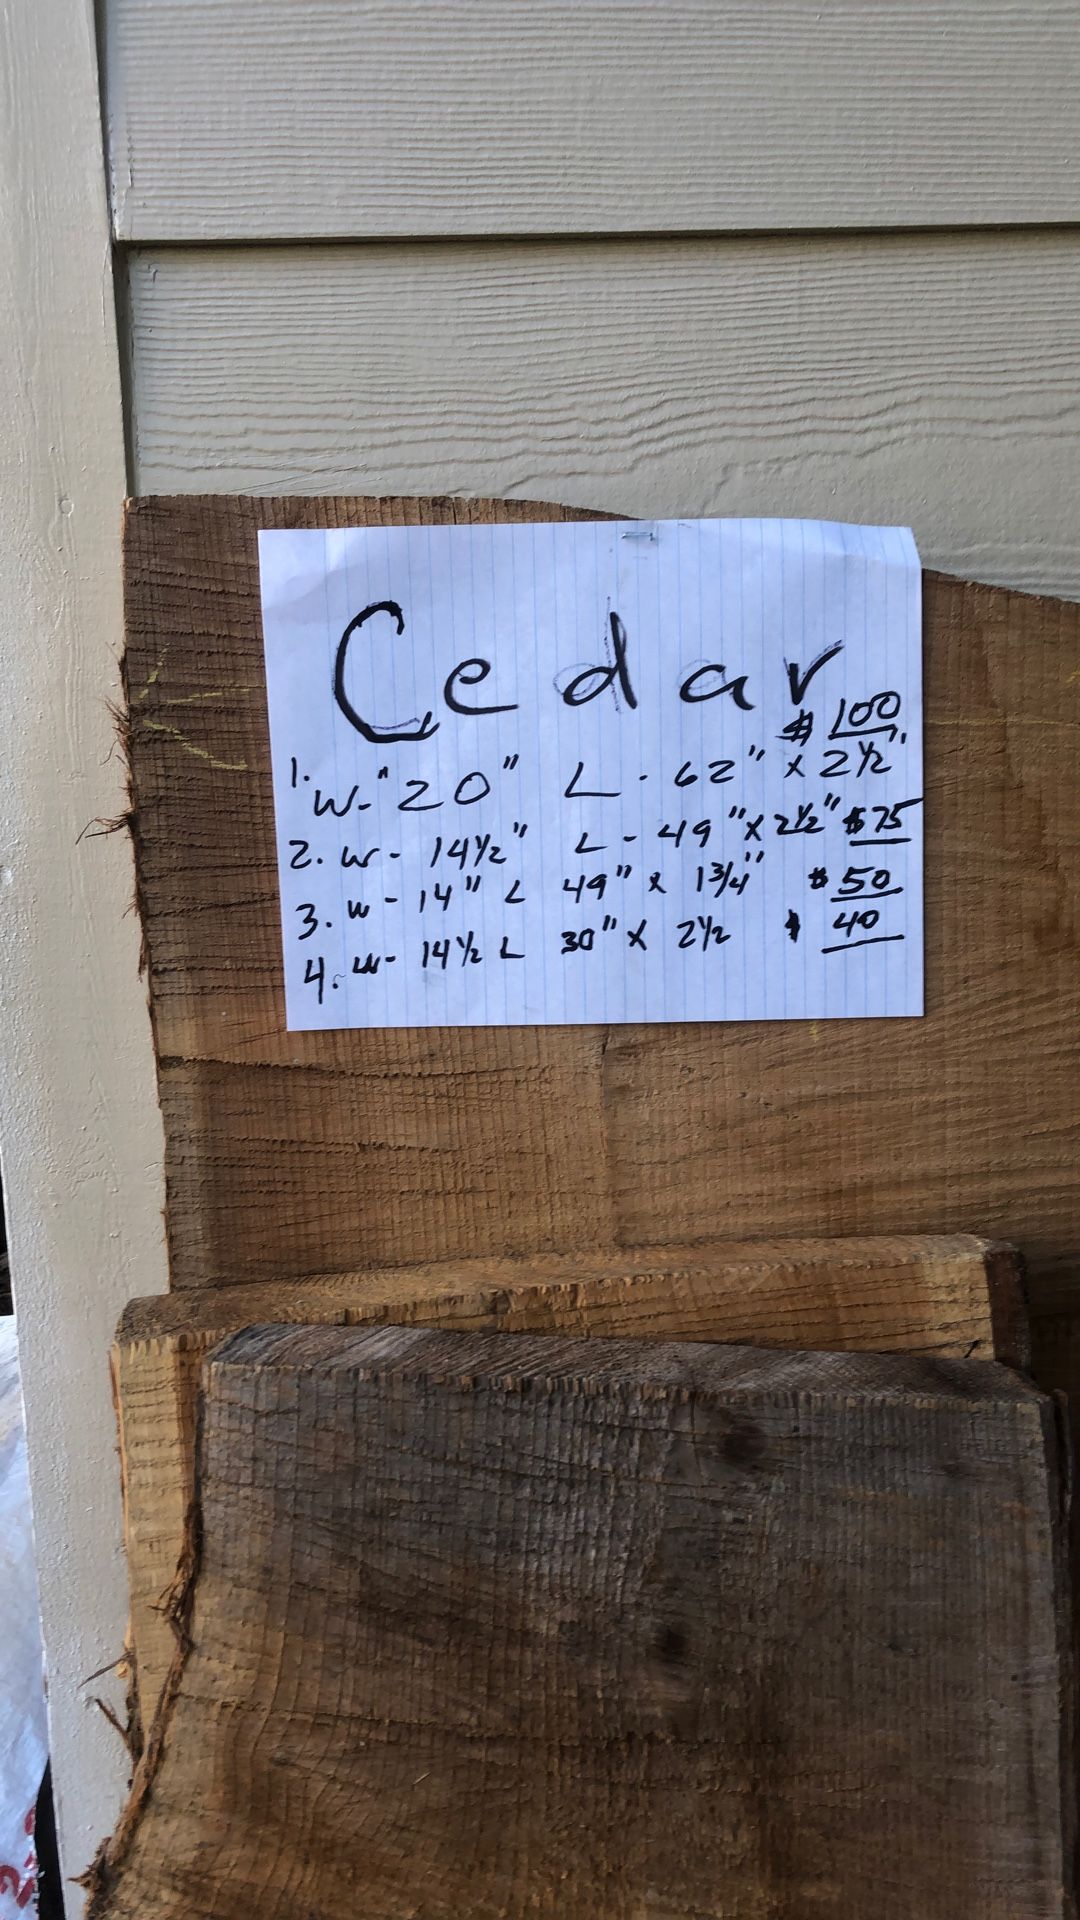 Cedar
$ 100
1. W-"20" L - 62" x 2½"
2. W - 14½" L - 49" x 2½" $75
3. W - 14" L 49" x 1¾" $50
4. W- 14½ L 30" x 2½ $ 40